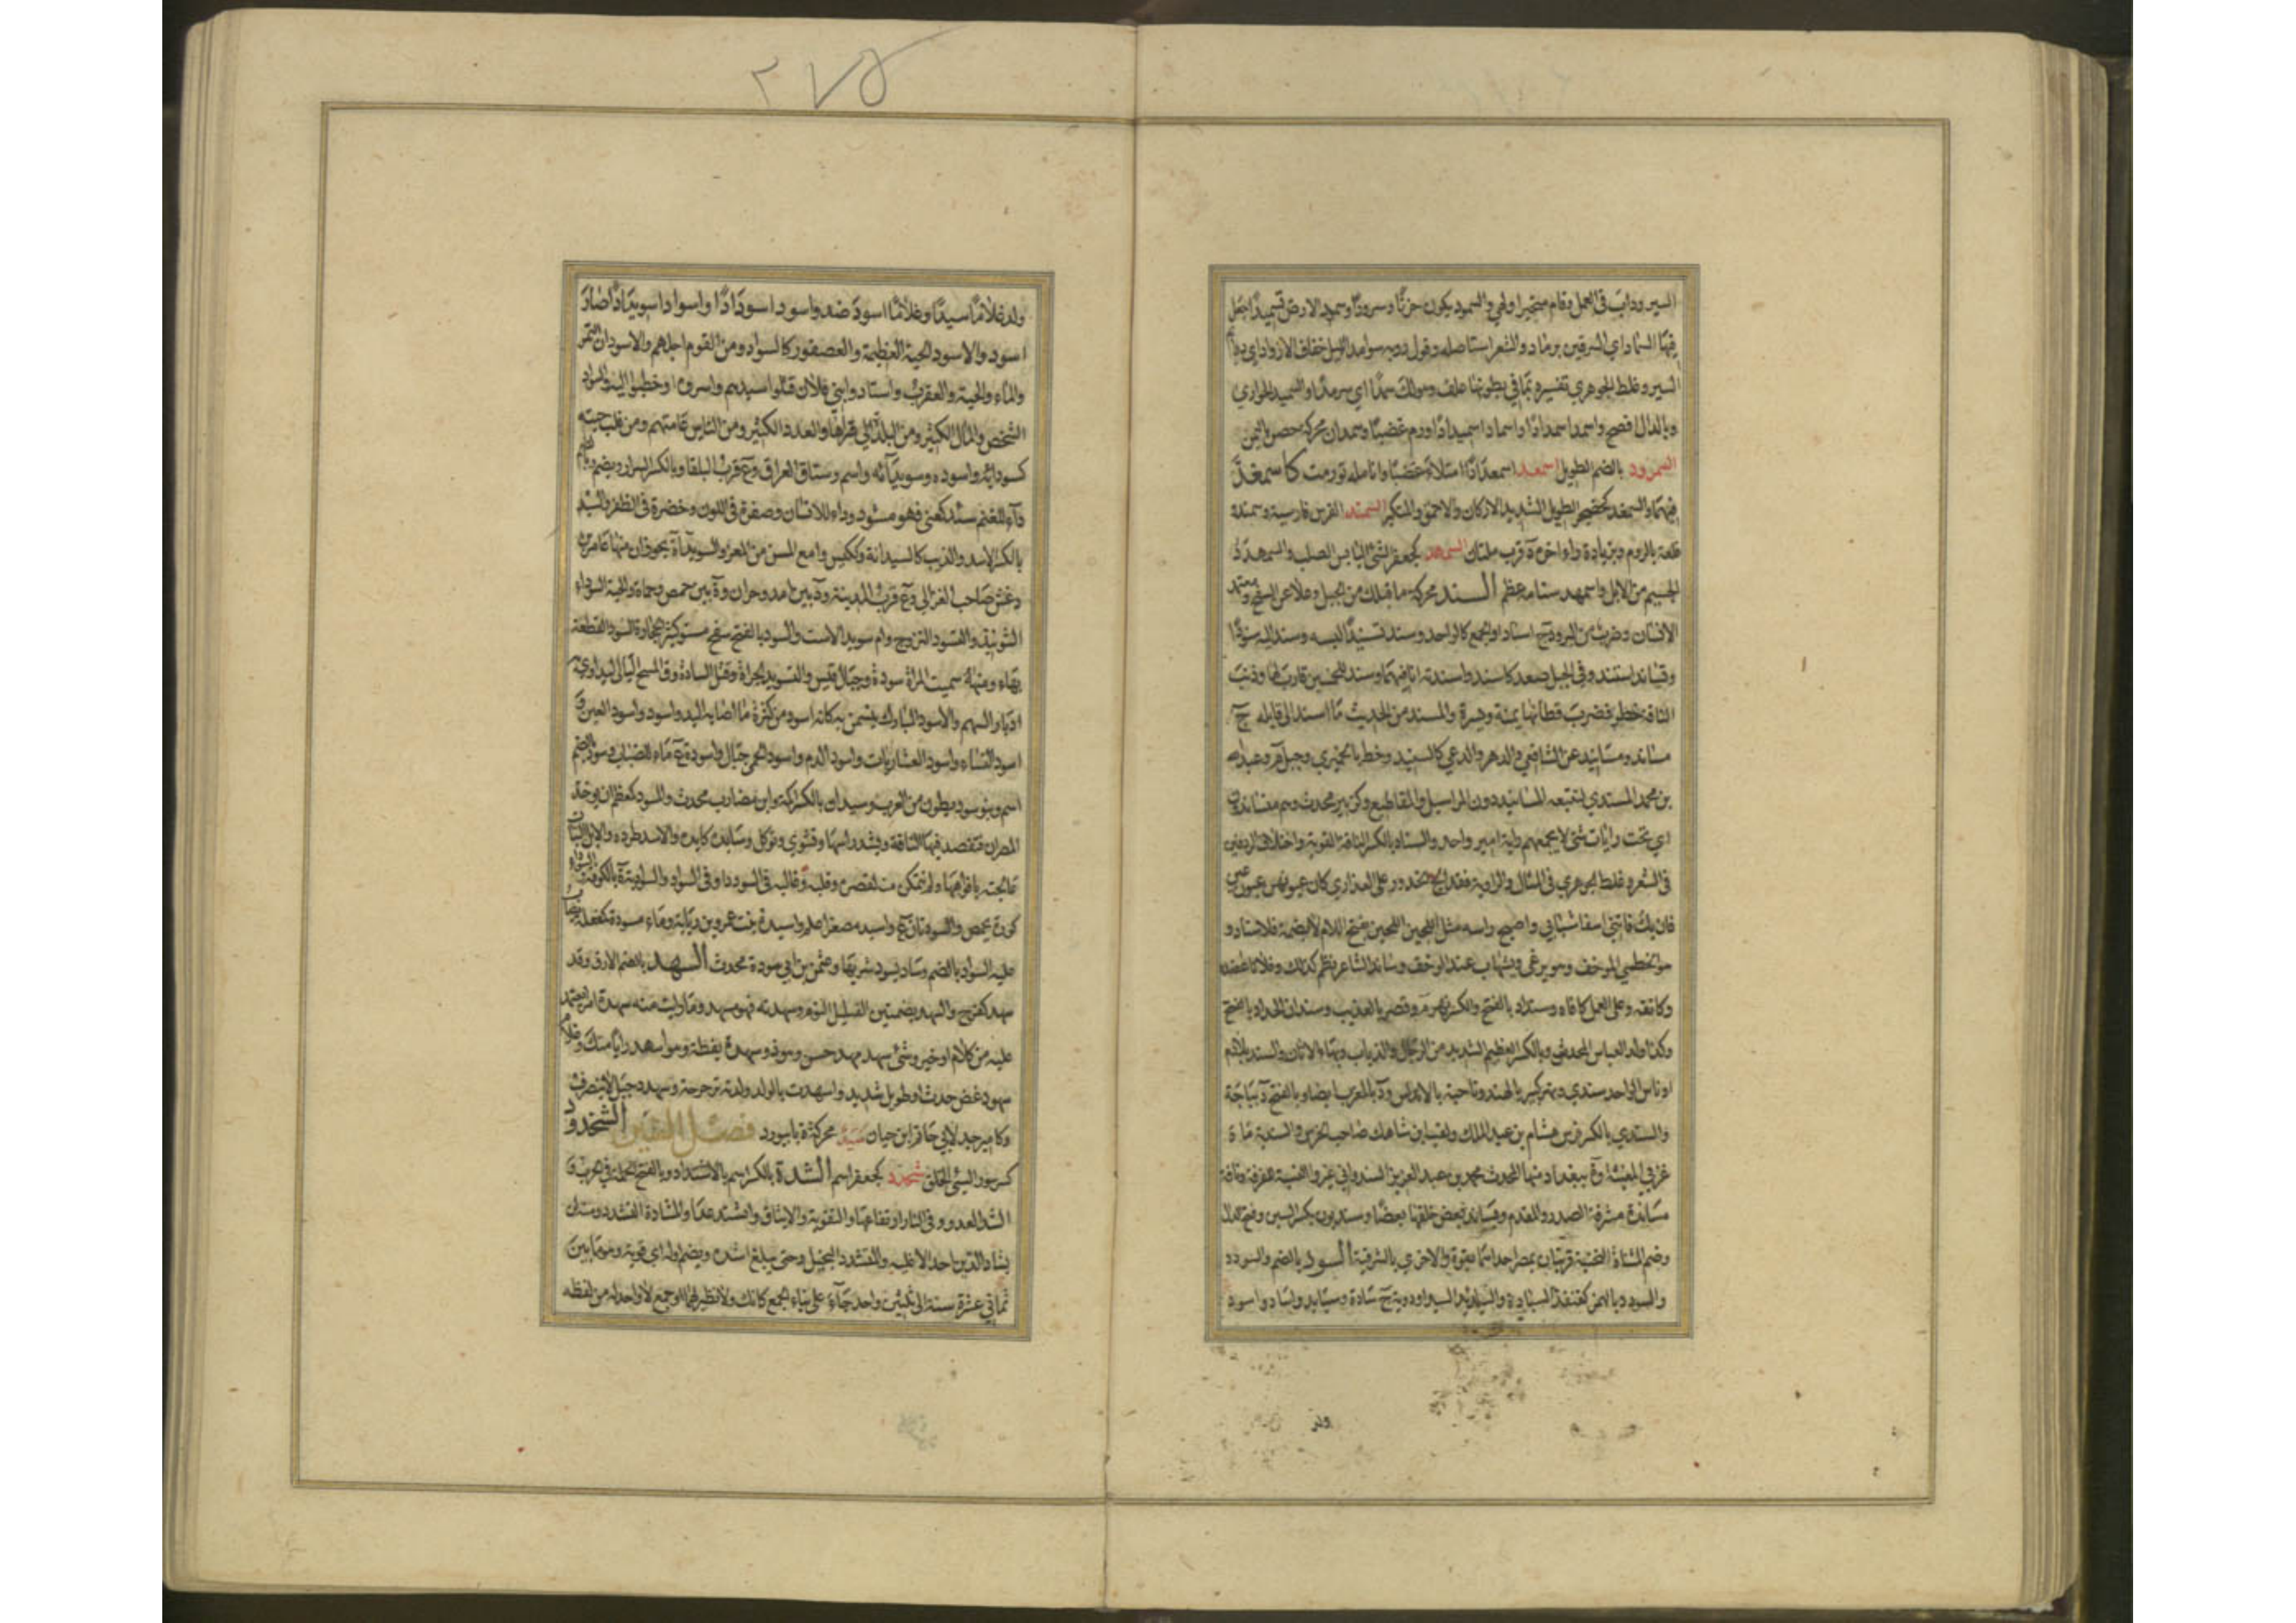 السير ودابت في العمل وقام متحيرا ولهي والسمود يكون حزنا وسرورا وسمد الارض تسميدا جعل
فيها السماد اي السرقين برماد والشعر استاصله وقول روبة سوامد الليل خفاف الازواد اي دوائم
السير وغلط الجوهري تفسيره بما في بطونها علف وهو لك سمدا اي سرمدا والسميد الحواري
وبالذال افصح واسمد اسمدادا واسماد اسميدادا ورم غضبا وسمدان محركة حصن باليمن
السمرود بالضم الطويل اسمعد اسمعدادا امتلأ غضبا وانامله تورمت كاسمغد
فيهما والسمغد كحضجر الطويل الشديد الاركان والاحمق والمتكبر السمند الفرس فارسية وسمندو
قلعة بالروم وبزيادة راء اخره د قرب ملتان السمهد كجعفر الشئ اليابس الصلب والسمهدد
الجسيم من الابل واسمهد سنامه عظم السند محركة ما قابلك من الجبل وعلا عن السفح ومعتمد
الانسان وضرب من البرود ج اسناد او الجمع كالواحد وسند تسنيدا لبسه وسند اليه سنودا
وتساند استند وفي الجبل صعد كاسند واسندته انا فيهما وسند للخمسين قارب لها وذنب
الناقة خطر فضرب قطاتها يمنة ويسرة والمسند من الحديث ما اسند الى قايله ج
مساند ومسانيد عن الشافعي والدهر والدعي كالسنيد وخط بالحميري وجبل م وعبد الله
بن محمد المسندي لتتبعه المسانيد دون المراسيل والمقاطيع وكزبير محدث وهم متساندون
اي تحت رايات شتى لا يجمعهم راية امير واحد والسناد بالكسر الناقة القوية واختلاف الردفين
في الشعر وغلط الجوهري في المثال والرواية فقد الج الخدور على العذاري كان عيونهن عيون عين
فان يك فاتني اسفا شبابي واصبح راسه مثل اللجين اللجين بفتح اللام لا بضمه فلا سناد و
هو الخطمي الموخف وهو يرغي ويشهاب عند الوخف وساند الشاعر نظم كذلك وفلانا عاضده
وكانفه وعلى العمل كافاه وسنداد بالفتح والكسر نهر م وقصر بالعذيب وسندان الحداد بالفتح
وكذا ولد العباس المحدث وبالكسر العظيم الشديد من الرجال والذياب وبهاء الاتان والسند بلاد م
او ناس الواحد سندي ونهر كبير بالهند وناحية بالاندلس ود بالمغرب ايضا وبالفتح د بباجة
والسندي بالكسر فرس هشام بن عبد الملك ولقب ابن شاهك صاحب الحرس والسندية ماءة
غربي المغيثة وة ببغداد منها المحدث محمد بن عبد العزيز السندواني غيروا النسبة للفرقة وناقة
مساندة مشرفة الصدر والمقدم ويساند بعض خلقها بعضا وسنديون بكسر السين وفتح الدال
وضم المثناة التحتية قريتان بمصر احداهما بفوة والاخرى بالشرقية السود بالضم والسودد
والسودد بالهمز كقنفذ السيادة والسايد السيد او دونه ج سادة وسيايد واساد واسود
ولد
٢٧٥
ولد غلاما سيدا وغلاما اسود ضد واسود اسودادا واسواد اسويدادا صار
اسود والاسود الحية العظيمة والعصفور كالسواد ومن القوم اجلهم والاسودان التمر
والماء والحية والعقرب واستاد وابني فلان قتلوا سيدهم واسروه او خطبوا اليه والسواد
الشخص والمال الكثير ومن البلدة قراها والعدد الكثير ومن الناس عامتهم ومن القلب حبته
كسودائه واسوده وسويدائه واسم ورستاق العراق وع قرب البلقا وبالكسر السرار ويضم وبالضم
داء للغنم سئد كعني فهو مسئود وداء للانسان وصفرة في اللون وخضرة في الظفر والسيد
بالكسر الاسد والذئب كالسيدانة وككيس وامع المسن من المعز والسويداء ة بحوران منها عامر بن
دغش صاحب الغزالي وع قرب المدينة ود بين امد وحران وة بين حمص وحماة والحبة السوداء
الشونيز والتسود التزوج وام سويد الاست والسود بالفتح سفح مستو كثير الحجارة السود القطعة
بهاء ومنها سميت المرأة سودة وجبال قيس والتسويد الجراة وقتل السادة ودق المسح البالي ليداوي به
ادبار والسهم والاسود المبارك يتيمن به كانه اسود من كثرة ما اصابه اليد واسود واسود العين و
اسود النساء واسود العشاريات واسود الدم واسود الحمى جبال واسودة ع ماء للضباب وسود بالضم
اسم وبنو سود بطون من العرب وسيدان بالكسر اكمة وابن مضارب محدث والمسود كمعظم ان يوخذ
المصران فتفصد فيها الناقة ويشد راسها وتشوى وتوكل وساوده كابده والاسد طرده والابل النبات
عالجته بافواهها ولم تتمكن منه لقصره وقلته وغالبه في السودد او في السواد والسوادية ة بالكوفة والسوداء
كورة بحمص والسودتان ع واسيد مصغرا علم واسيدة بنت عمرو بن ربابة وماء مسودة كمفعلة يصاب
عليه السواد بالضم وساد يسود شربها وعثمن بن ابي سودة محدث السهد بالضم الارق وقد
سهد كفرح والسهد بضمتين القليل النوم وسهدته فهو مسهد وما رايت منه سهدة امرا يعتمد
عليه من كلام او خير وشئ سهد مهد حسن وهو ذو سهدة يقظة وهو اسهد رايا منك وغلام
سهود غض حدث او طويل شديد واسهدت بالولد ولدته بزحرة وسهدد جبل لا ينصرف
وكامير جد لابي حاتم ابن حبان سيد محركة ة بابيورد فصل الشين الشخدود
كسرسور السيئ الخلق شحرد كجعفر اسم الشدة بالكسر اسم بالاشتداد وبالفتح الحملة في الحرب و
الشد العدو وفي النار ارتفاعها والتقوية والايثاق واشتد عدا والمشادة التشدد ومنه لن
يشاد الدين احد الا غلبه والمتشدد البخيل وحتى يبلغ اشده ويضم اوله اي قوته وهو ما بين
ثماني عشرة سنة الى ثلثين واحد جاء على بناء الجمع كانك ولا نظير لهما او جمع لا واحد له من لفظه